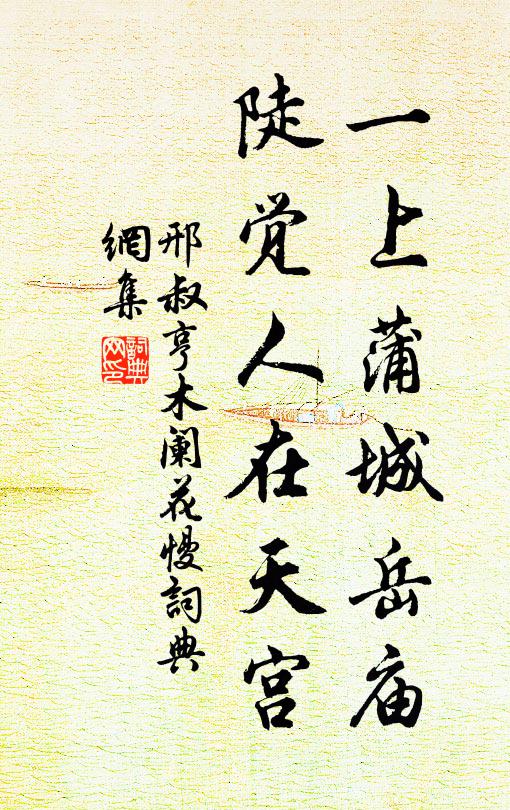 一上蒲城岳庙
陡觉人在天宫
邢叔亨木阑花慢詞典
網集
詞典网印